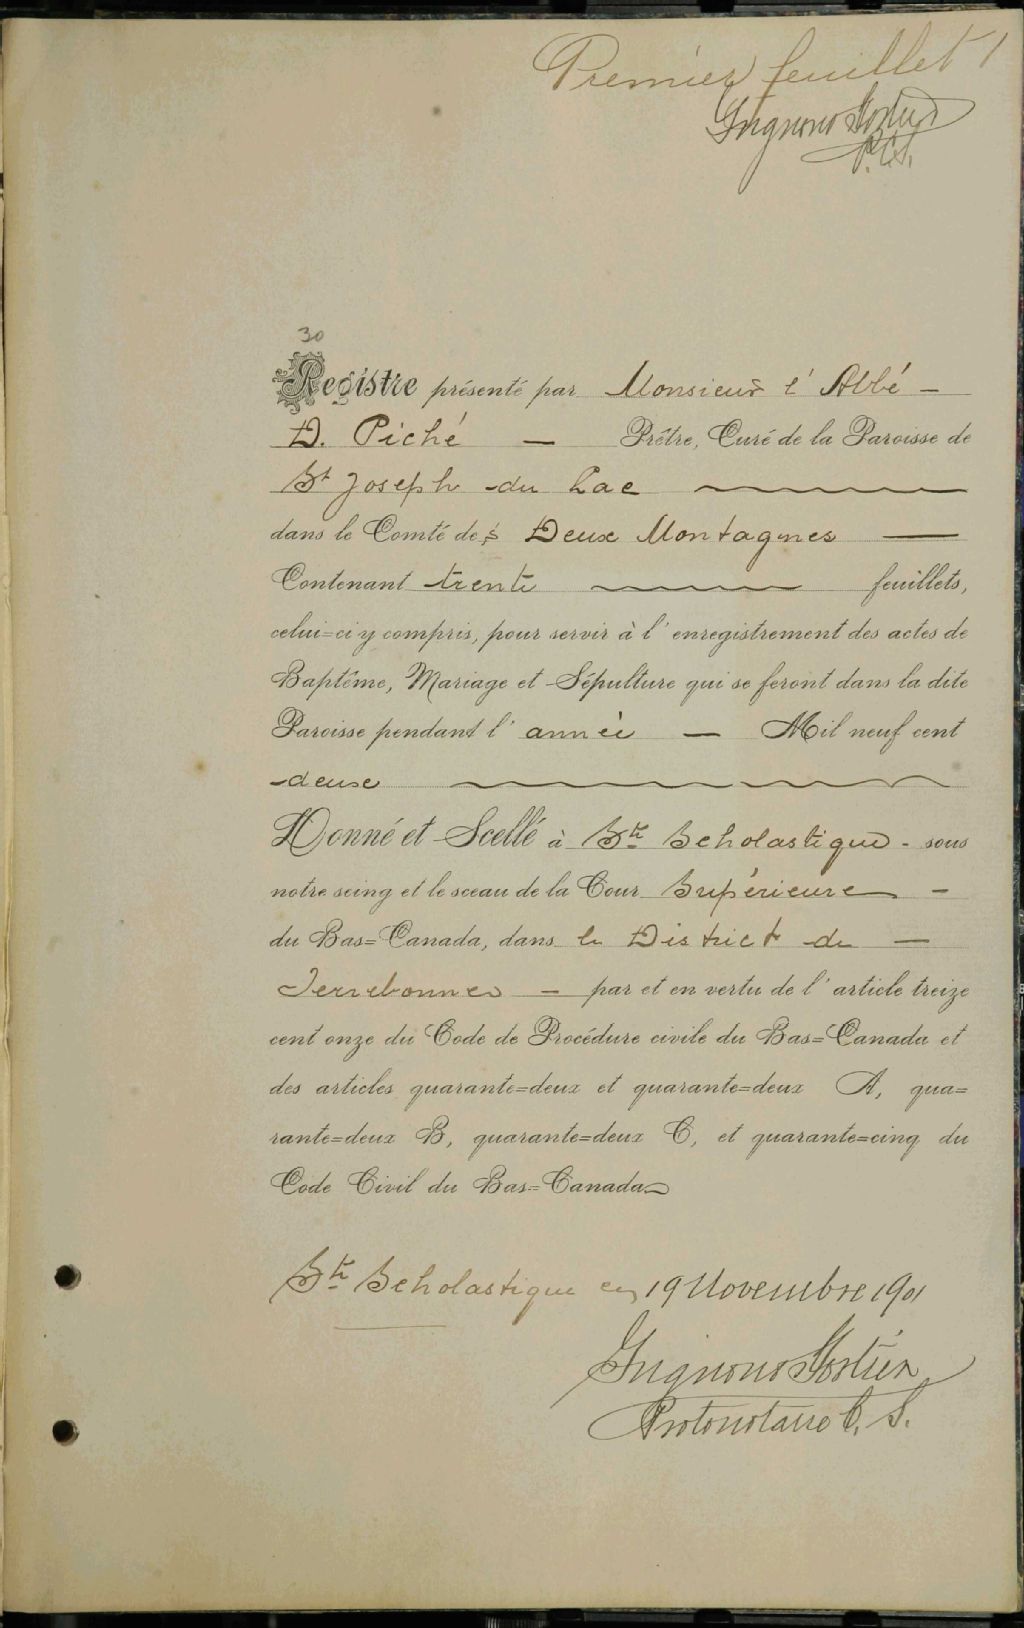 Premier feuillet 1
Grignon & Fortier
P.C.S.
30
Registre présenté par Monsieur l' Abbé —
D. Piché — Prêtre, Curé de la Paroisse de
St Joseph du Lac
dans le Comté des Deux Montagnes —
Contenant trente feuillets,
celui=ci y compris, pour servir à l' enregistrement des actes de
Baptême, Mariage et Sépulture qui se feront dans la dite
Paroisse pendant l' année — Mil neuf cent
deux
Donné et Scellé à Ste Scholastique - sous
notre seing et le sceau de la Cour Supérieure —
du Bas=Canada, dans le District de —
Terrebonne — par et en vertu de l' article treize
cent onze du Code de Procédure civile du Bas=Canada et
des articles quarante=deux et quarante=deux A, qua=
rante=deux B, quarante=deux C, et quarante=cinq du
Code Civil du Bas=Canada
Ste Scholastique ce 19 Novembre 1901
Grignon & Fortier
Protonotaire C. S.